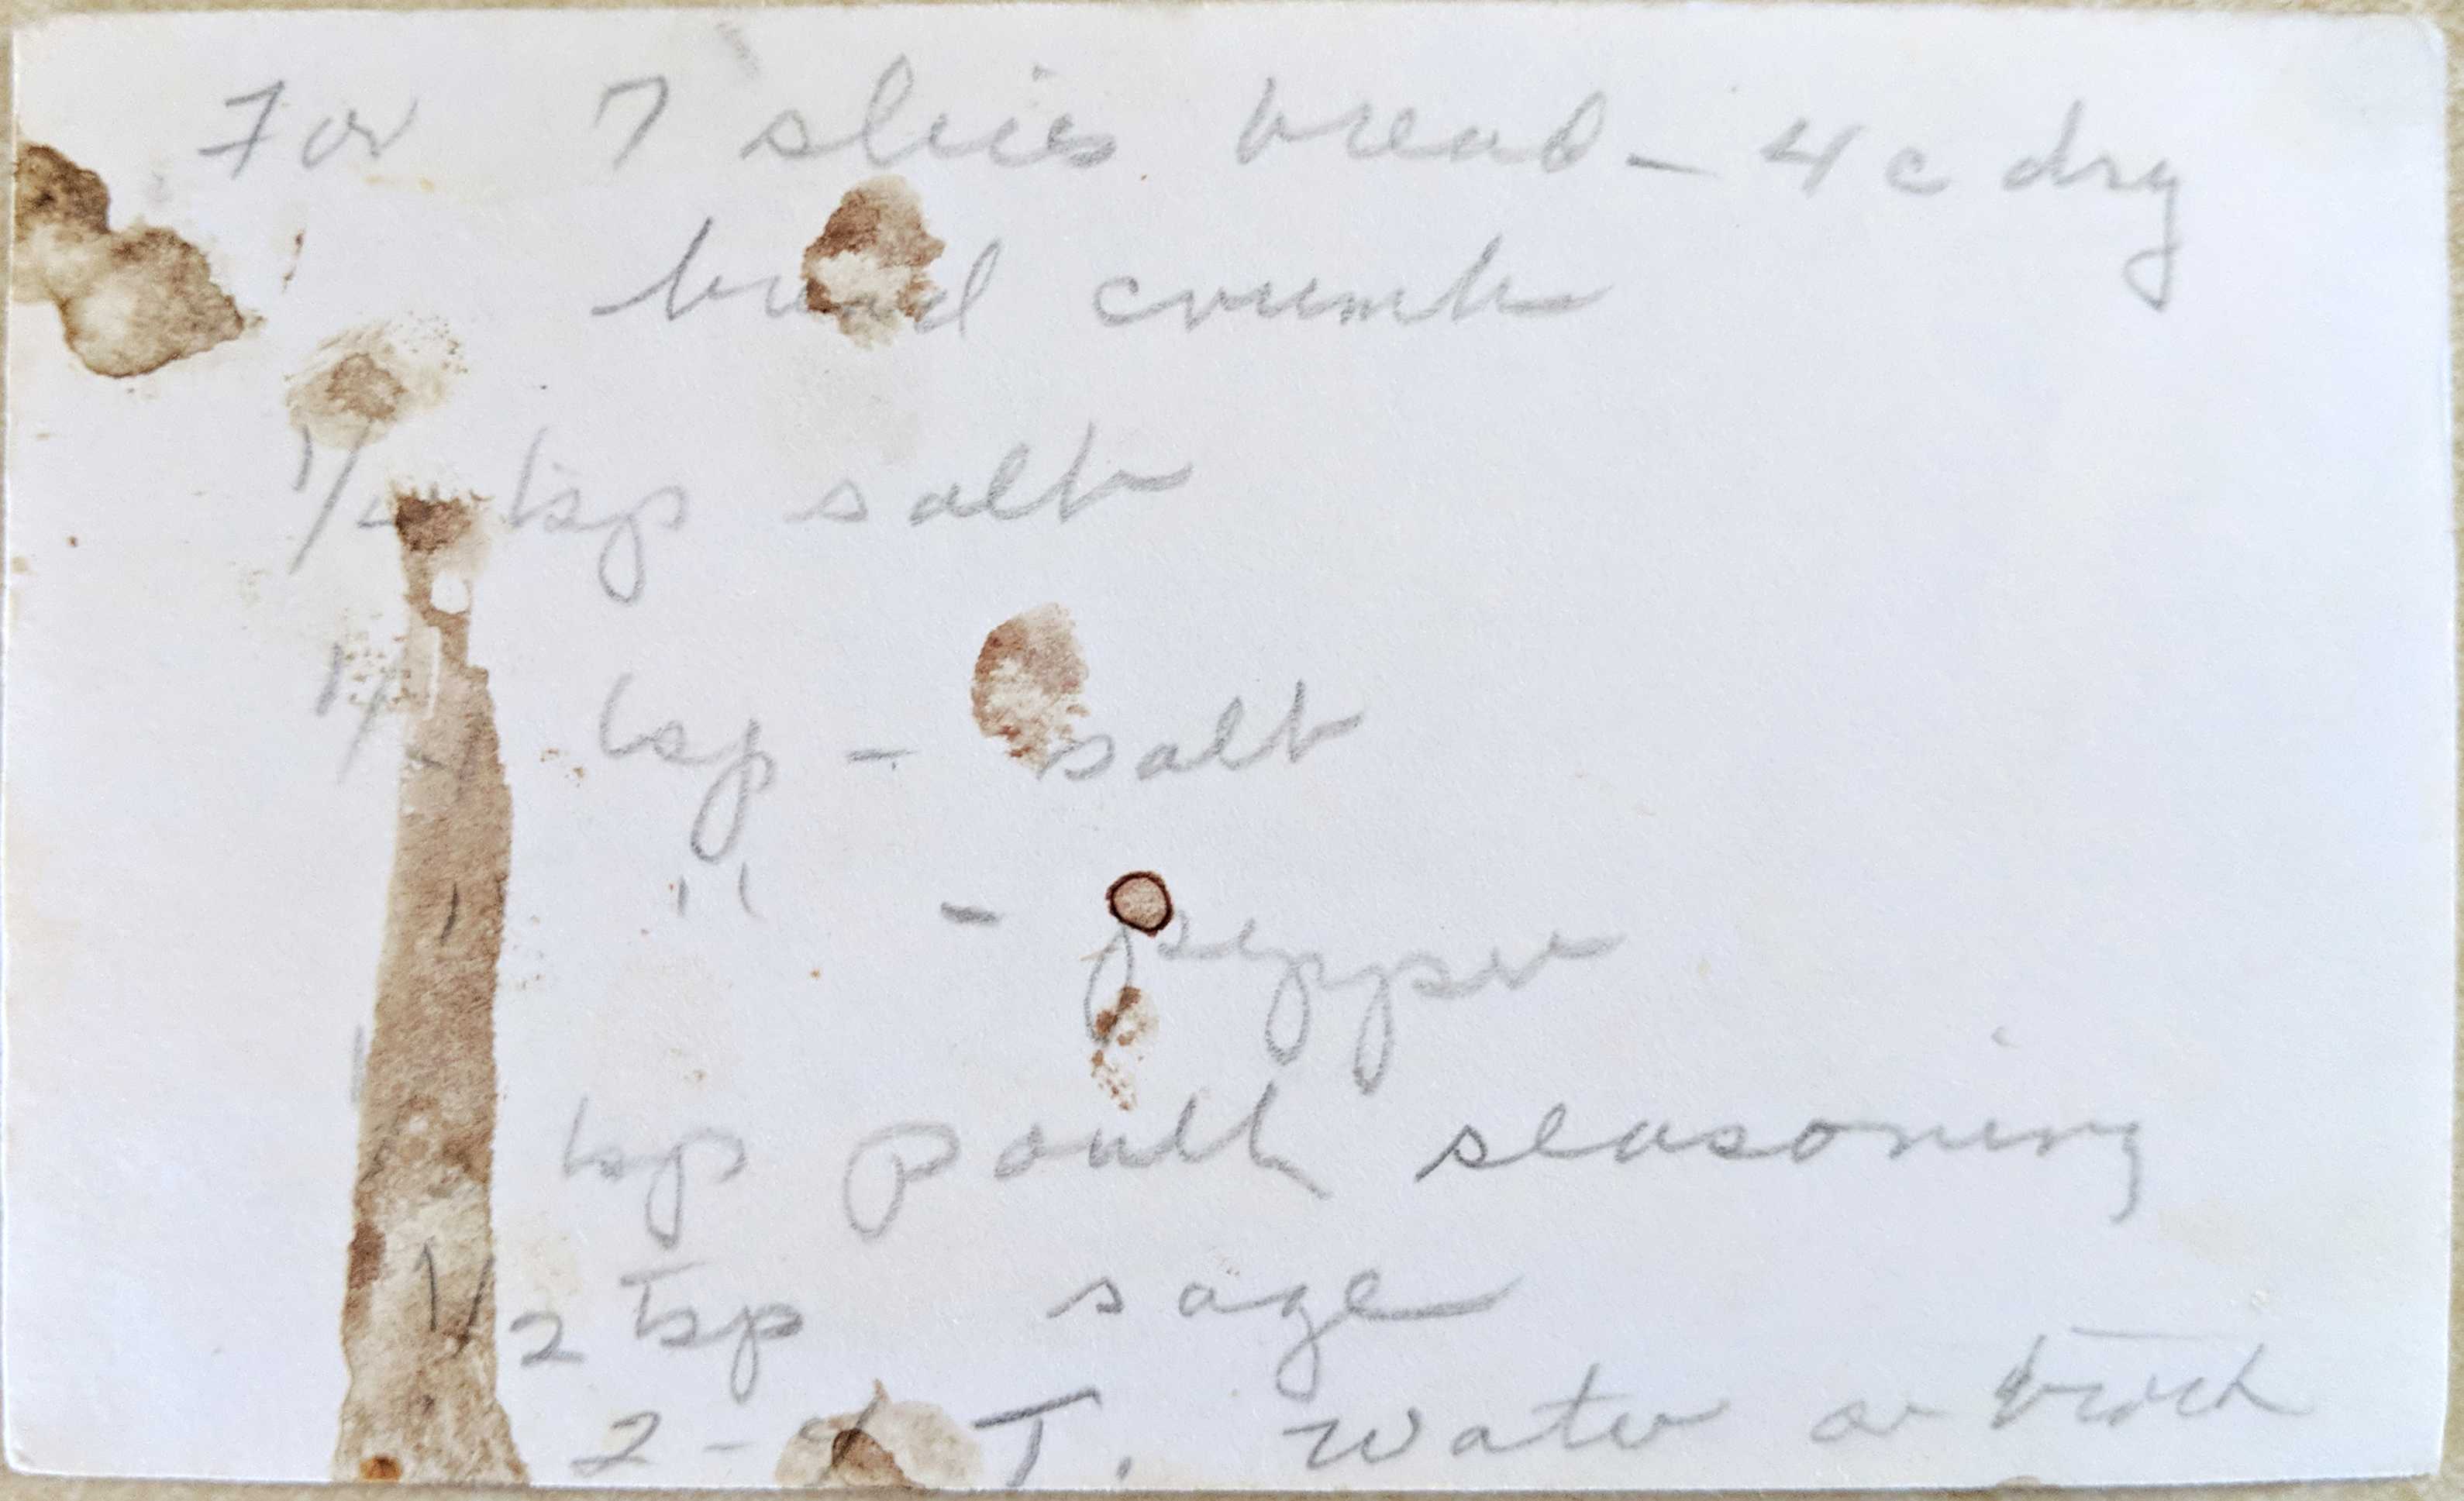 For 7 slices bread - 4 c dry
bread crumbs
1/4 tsp salt
1/4 tsp - salt
" - pepper
1 tsp poult seasoning
1/2 tsp sage
2 - T. water or broth